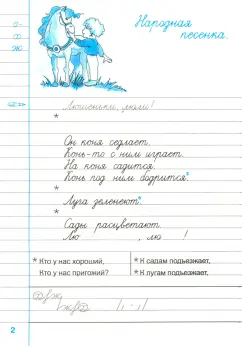 Народная
песенка.
Люшеньки, люли!
*
Он коня седлает.
Конь-то с ним играет.
На коня садится.
Конь под ним бодрится*
*
Луга зеленеют*
*
Сады расцветают.
Лю , лю !
* Кто у нас хороший,
Кто у нас пригожий?
* К садам подъезжает,
К лугам подъезжает,
2